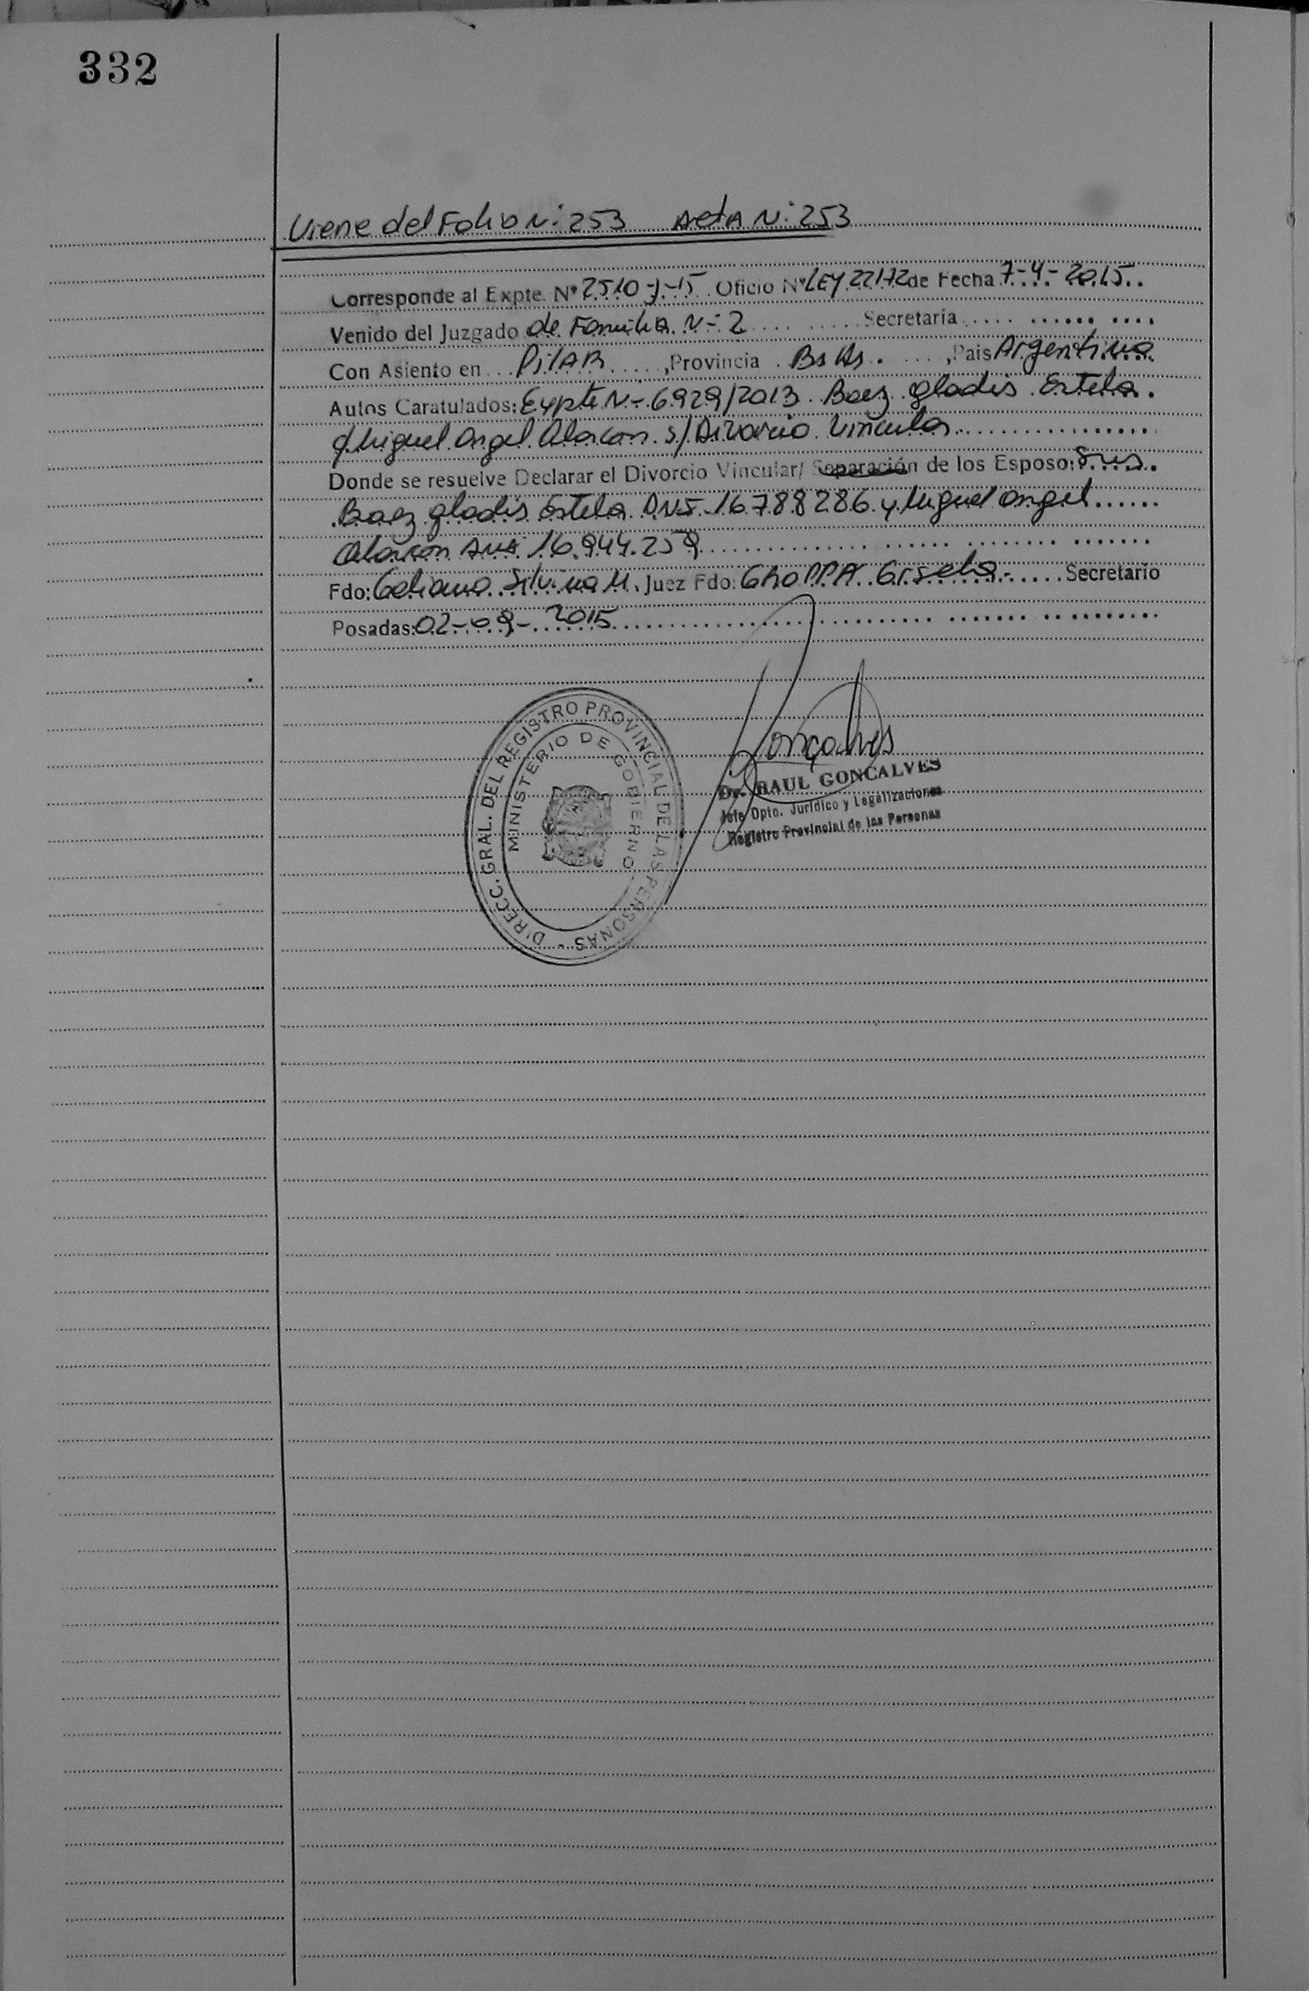 332
Viene del Folio N: 253 Acta N: 253
Corresponde al Expte. Nº 2510-J-15 Oficio Nº LEY 22172 de Fecha 7-4-2015
Venido del Juzgado de Familia N-2 Secretaría
Con Asiento en Pilar, Provincia Bs As. , Pais Argentina
Autos Caratulados: Expte N- 6929/2013 Baez gladis Estela
c/Miguel Angel Alarcon s/Divorcio Vincular
Donde se resuelve Declarar el Divorcio Vincular/ Separación de los Esposo: Sres.
Baez gladis Estela DNI- 16.788.286 y Miguel Angel
Alarcon DNI 16.944.259
Fdo: Silvina M. Juez Fdo: Gisela Secretario
Posadas: 02-09-2015
DIRECC. GRAL. DEL REGISTRO PROVINCIAL DE LAS PERSONAS -
MINISTERIO DE GOBIERNO
Goncalves
Dr. RAUL GONCALVES
Jefe Dpto. Jurídico y Legalizaciones
Registro Provincial de las Personas